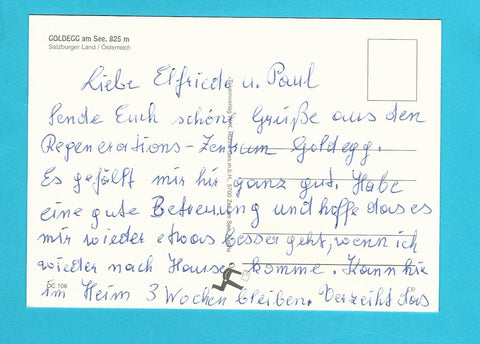 GOLDEGG am See, 825 m
Salzburger Land / Österreich
Liebe Elfriede u. Paul
Sende Euch schöne Grüße aus den
Regenerations-Zentrum Goldegg.
Es gefällt mir hir ganz gut. Habe
eine gute Betreuung und hoffe das es
mir wieder etwas besser geht, wenn ich
wieder nach Hause komme. Kann hir
im Heim 3 Wochen bleiben. Verzeiht das
DC 108